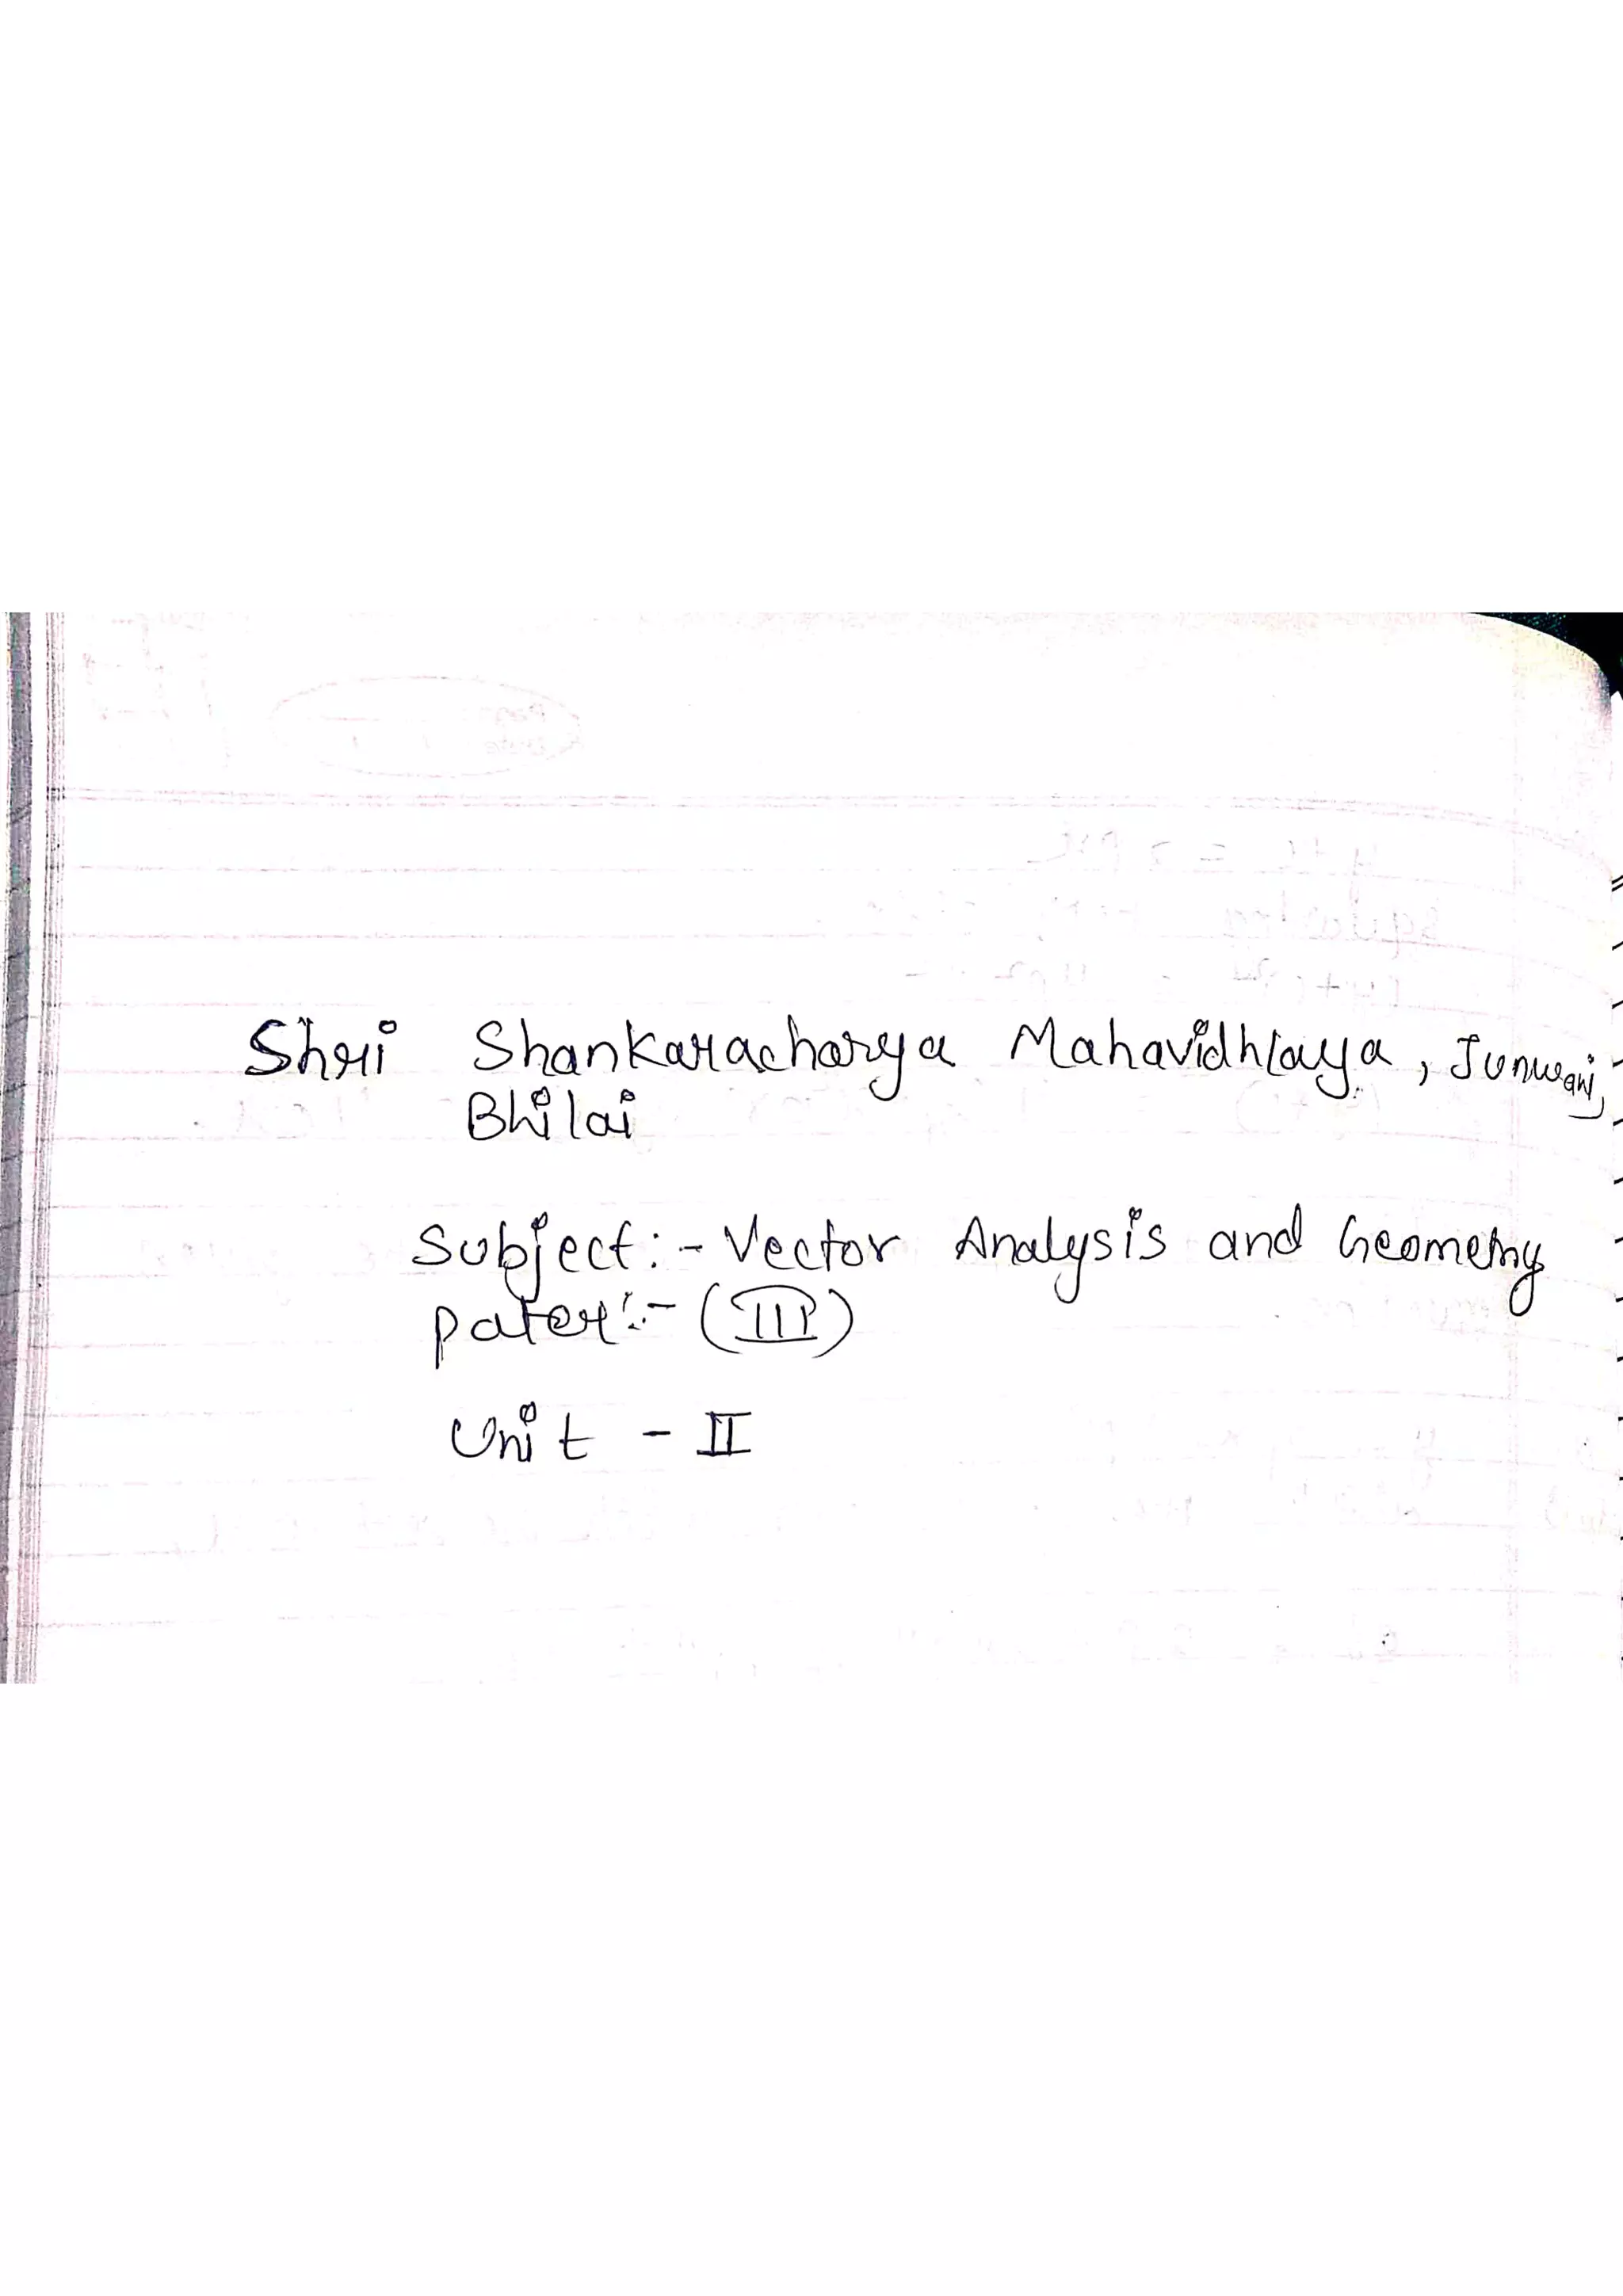 Shri Shankaracharya Mahavidhlaya, Junwani,
Bhilai
Subject:- Vector Analysis and Geometry
Paper:- (III)
Unit - II